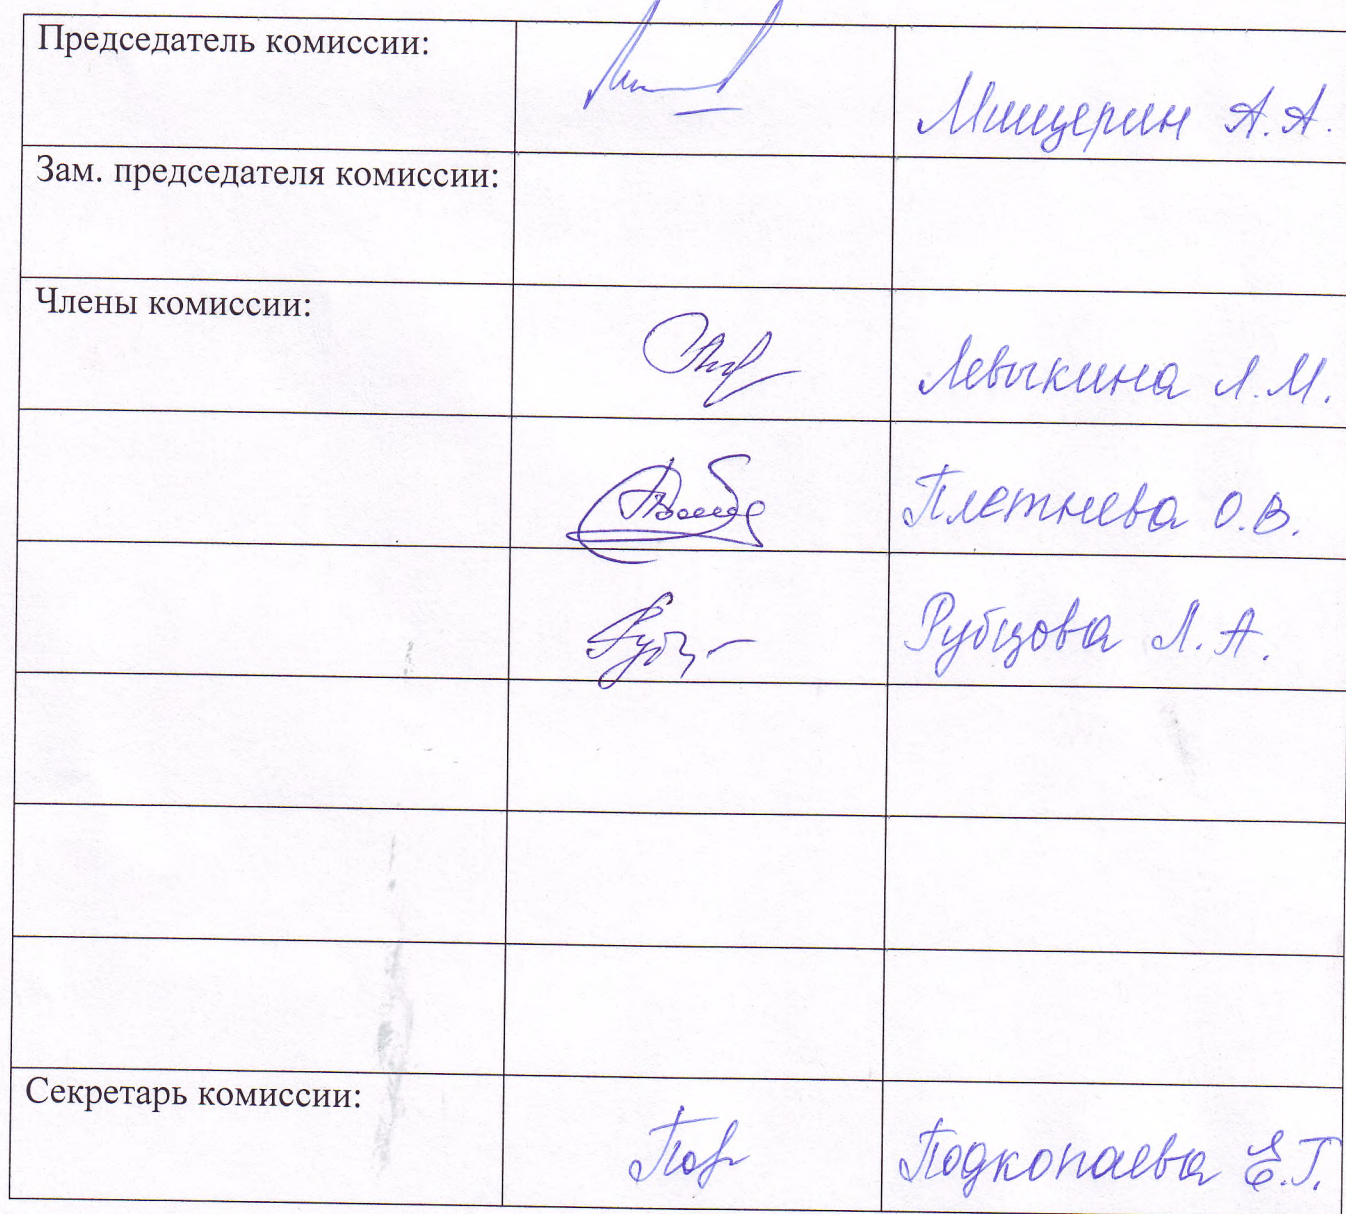 Председатель комиссии:
Мищерин А.А.
Зам. председателя комиссии:
Члены комиссии:
Левыкина Л.М.
Плетнева О.В.
Рубцова Л.А.
Секретарь комиссии:
Подкопаева Е.Г.